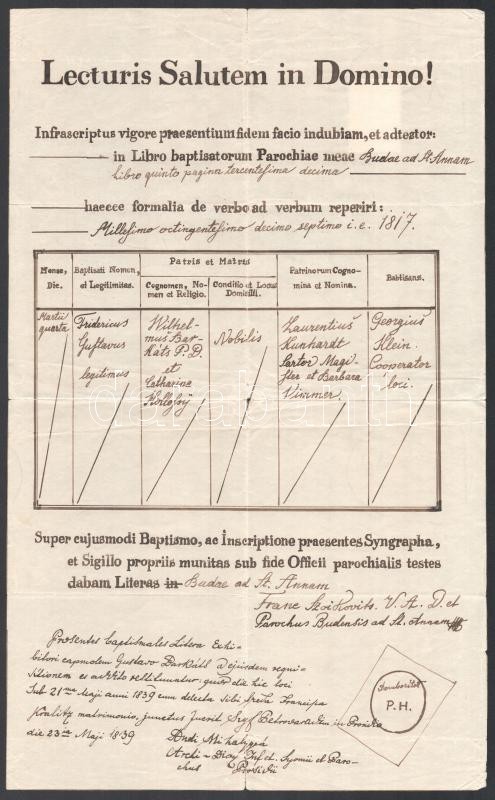 Lecturis Salutem in Domino!
Infrascriptus vigore praesentium fidem facio indubiam, et adtestor:
in Libro baptisatorum Parochiae meae Budae ad St. Annam
libro quinto pagina tercentesima decima
haecce formalia de verbo ad verbum reperiri:
Millesimo octingentesimo decimo septimo i.e. 1817.
Mense, Die.
Baptisati Nomen, et Legitimitas.
Patris et Matris
Cognomen, Nomen et Religio.
Conditio et Locus Domicilii.
Patrinorum Cognomina et Nomina.
Baptisans.
Martii quarta
Fridericus
Gustavus
legitimus
Wilhel-
mus Bar-
káts P. D.
et
Catharina
Nobilis
Laurentius
Kunhardt
Sartor Magi-
ster et Barbara
Vimmer.
Georgius
Klein.
Cooperator
loci.
Super cujusmodi Baptismo, ac Inscriptione praesentes Syngrapha,
et Sigillo propriis munitas sub fide Officii parochialis testes
dabam Literas in Budae ad St. Annam
Franc V. A. D. et
Parochus Budensis ad St. Annam
Presentes baptismales Litera Exhi-
bitori Gustavo ad ejusdem requi-
sitionem
Sub 21ma Maji anni 1839 cum
matrimonio, junctus fuerit
die 23tia Maji 1839
Archi-
chus
P.H.